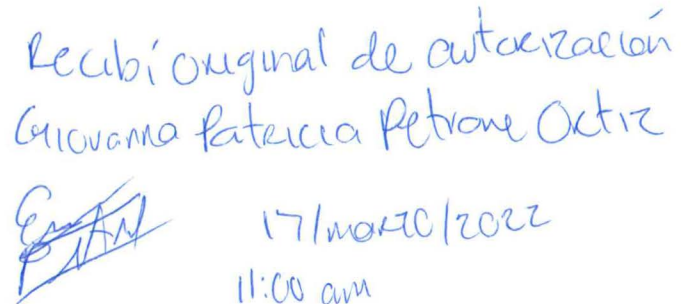 Recibí original de autorización
Giovanna Patricia Petrone Ortiz
17/marzo/2022
11:00 am